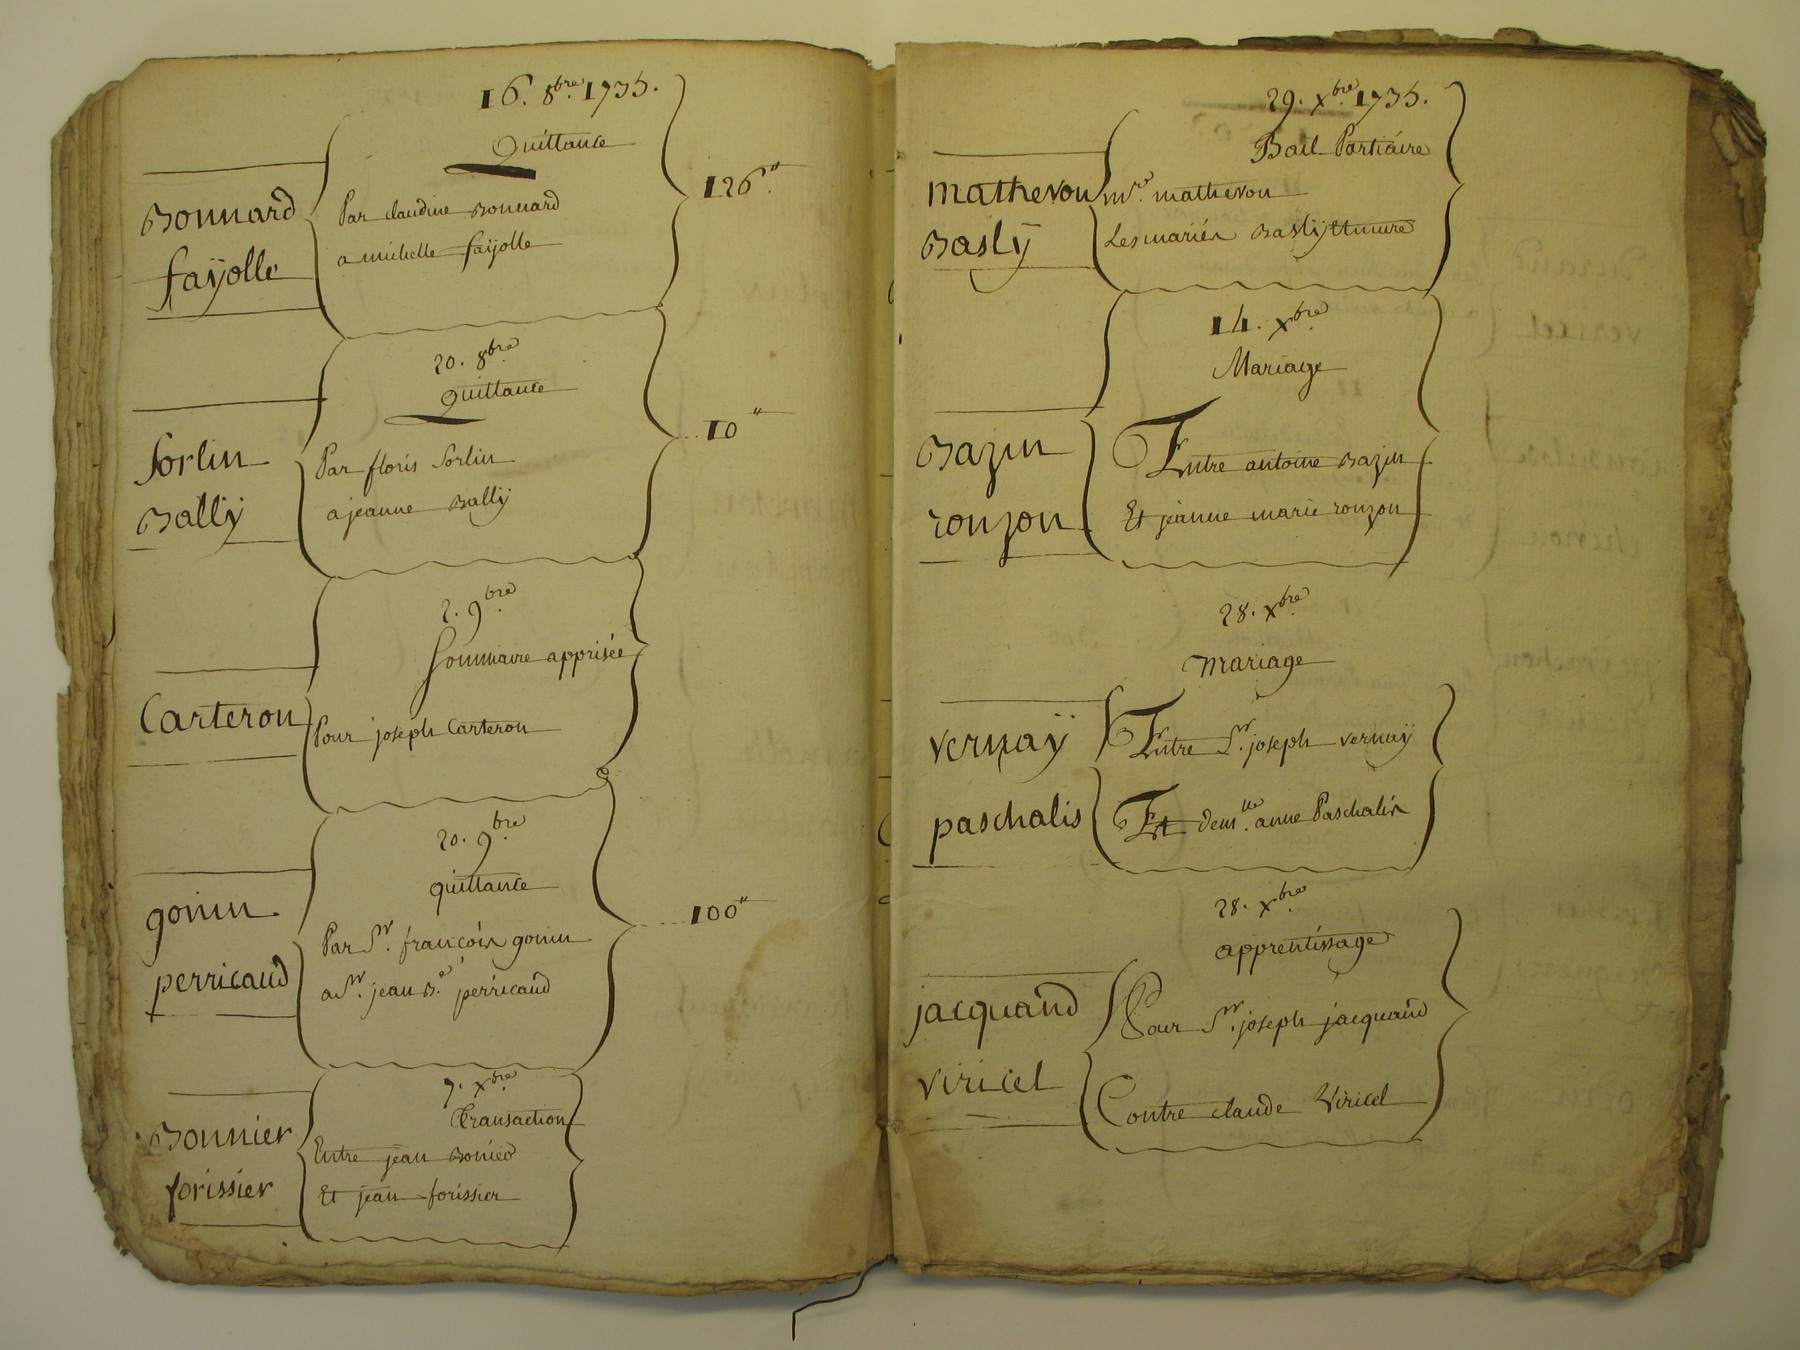 16. 8bre. 1735.
Quittance
Bonnard
faÿolle
Par claudine Bonnard
a michelle faÿolle
126"
20. 8bre
quittance
Sorlin
Ballÿ
Par floris Sorlin
a jeanne Ballÿ
10"
2. 9bre
Sommaire apprisée
Carteron
Pour joseph Carteron
20. 9bre
quittance
gonin
perricaud
Par Sr. françois gonin
a Sr. jean B.e perricaud
100"
7. Xbre
Transaction
Bonnier
forissier
Entre jean Bonier
Et jean forissier
29. Xbre 1735.
Bail Partiaire
mathevon
Baslÿ
mre. mathevon
Les mariés Baslÿ
14. Xbre
Mariage
Bazin
ronzon
Entre antoine Bazin
Et jeanne marie ronzon
28. Xbre
mariage
vernaÿ
paschalis
Entre Sr. joseph vernaÿ
Et demlle. anne Paschalis
28. Xbre
apprentissage
jacquand
viricel
Pour Sr. joseph jacquand
Contre claude Viricel